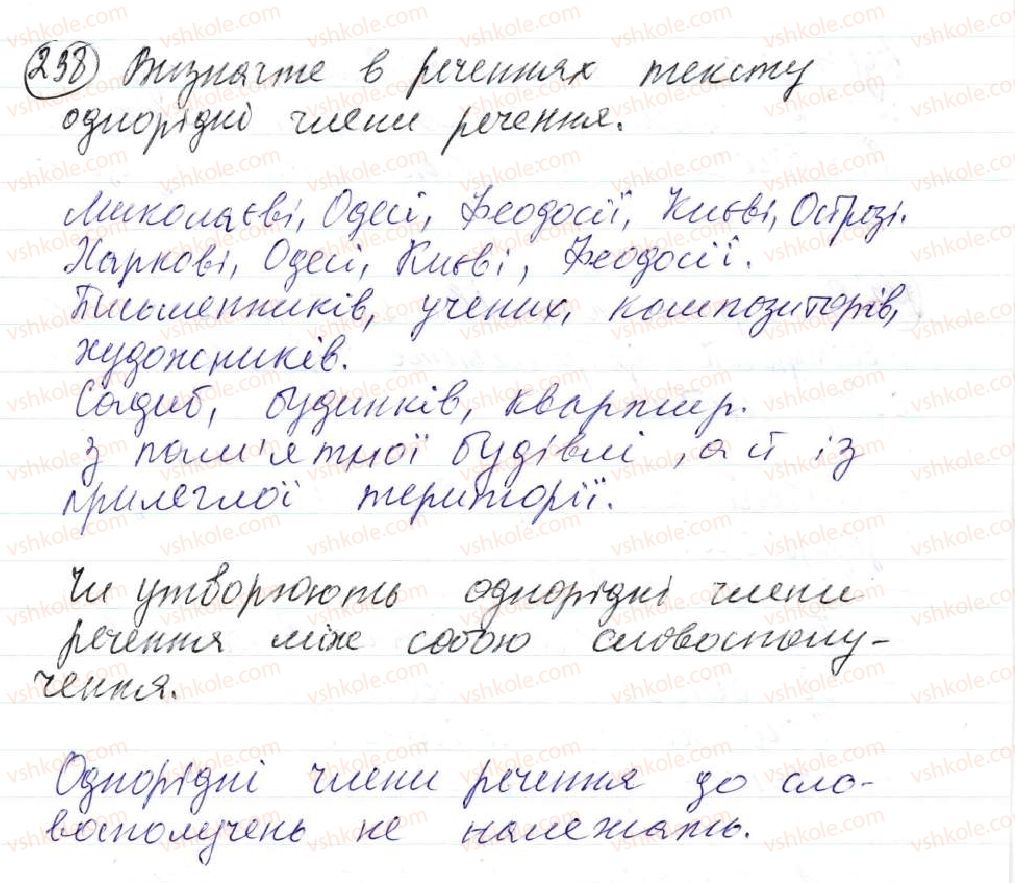 238 Визначте в реченнях тексту
однорідні члени речення.
Миколаєві, Одесі, Феодосії, Києві, Острозі.
Харкові, Одесі, Києві, Феодосії.
Письменників, учених, композиторів,
художників.
Садиб, будинків, квартир.
З пам'ятної будівлі, а й із
прилеглої території.
Чи утворюють однорідні члени
речення між собою словосполу-
чення.
Однорідні члени речення до сло-
восполучень не належать.